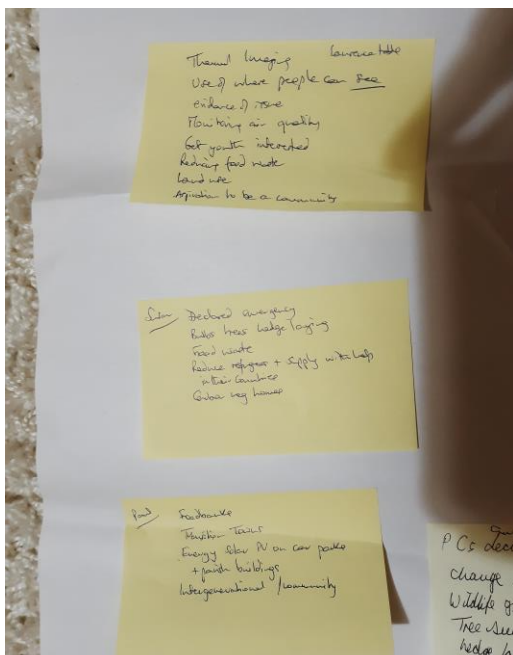 Thermal Imaging
Use of where people can see
evidence of issue
Monitoring air quality
Get youth interested
Reducing food waste
Land use
to be a community
Declared emergency
trees hedge laying
Food waste
Reduce refugees + supply with help
in their countries
Carbon neg houses
Foodbanks
Transition Towns
Energy Solar PV on car parks
+ parish buildings
Intergenerational / Community
PCs
change
Wildlife
Tree
hedge